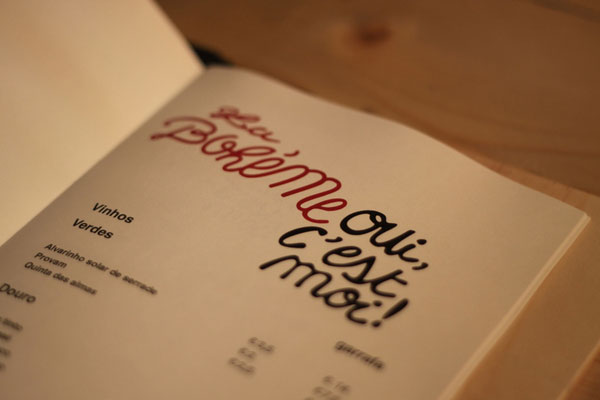 La
Bohéme
oui,
c'est
moi!
Vinhos
Verdes
Alvarinho solar de serrade
Provam
Quinta das almas
Douro
garrafa